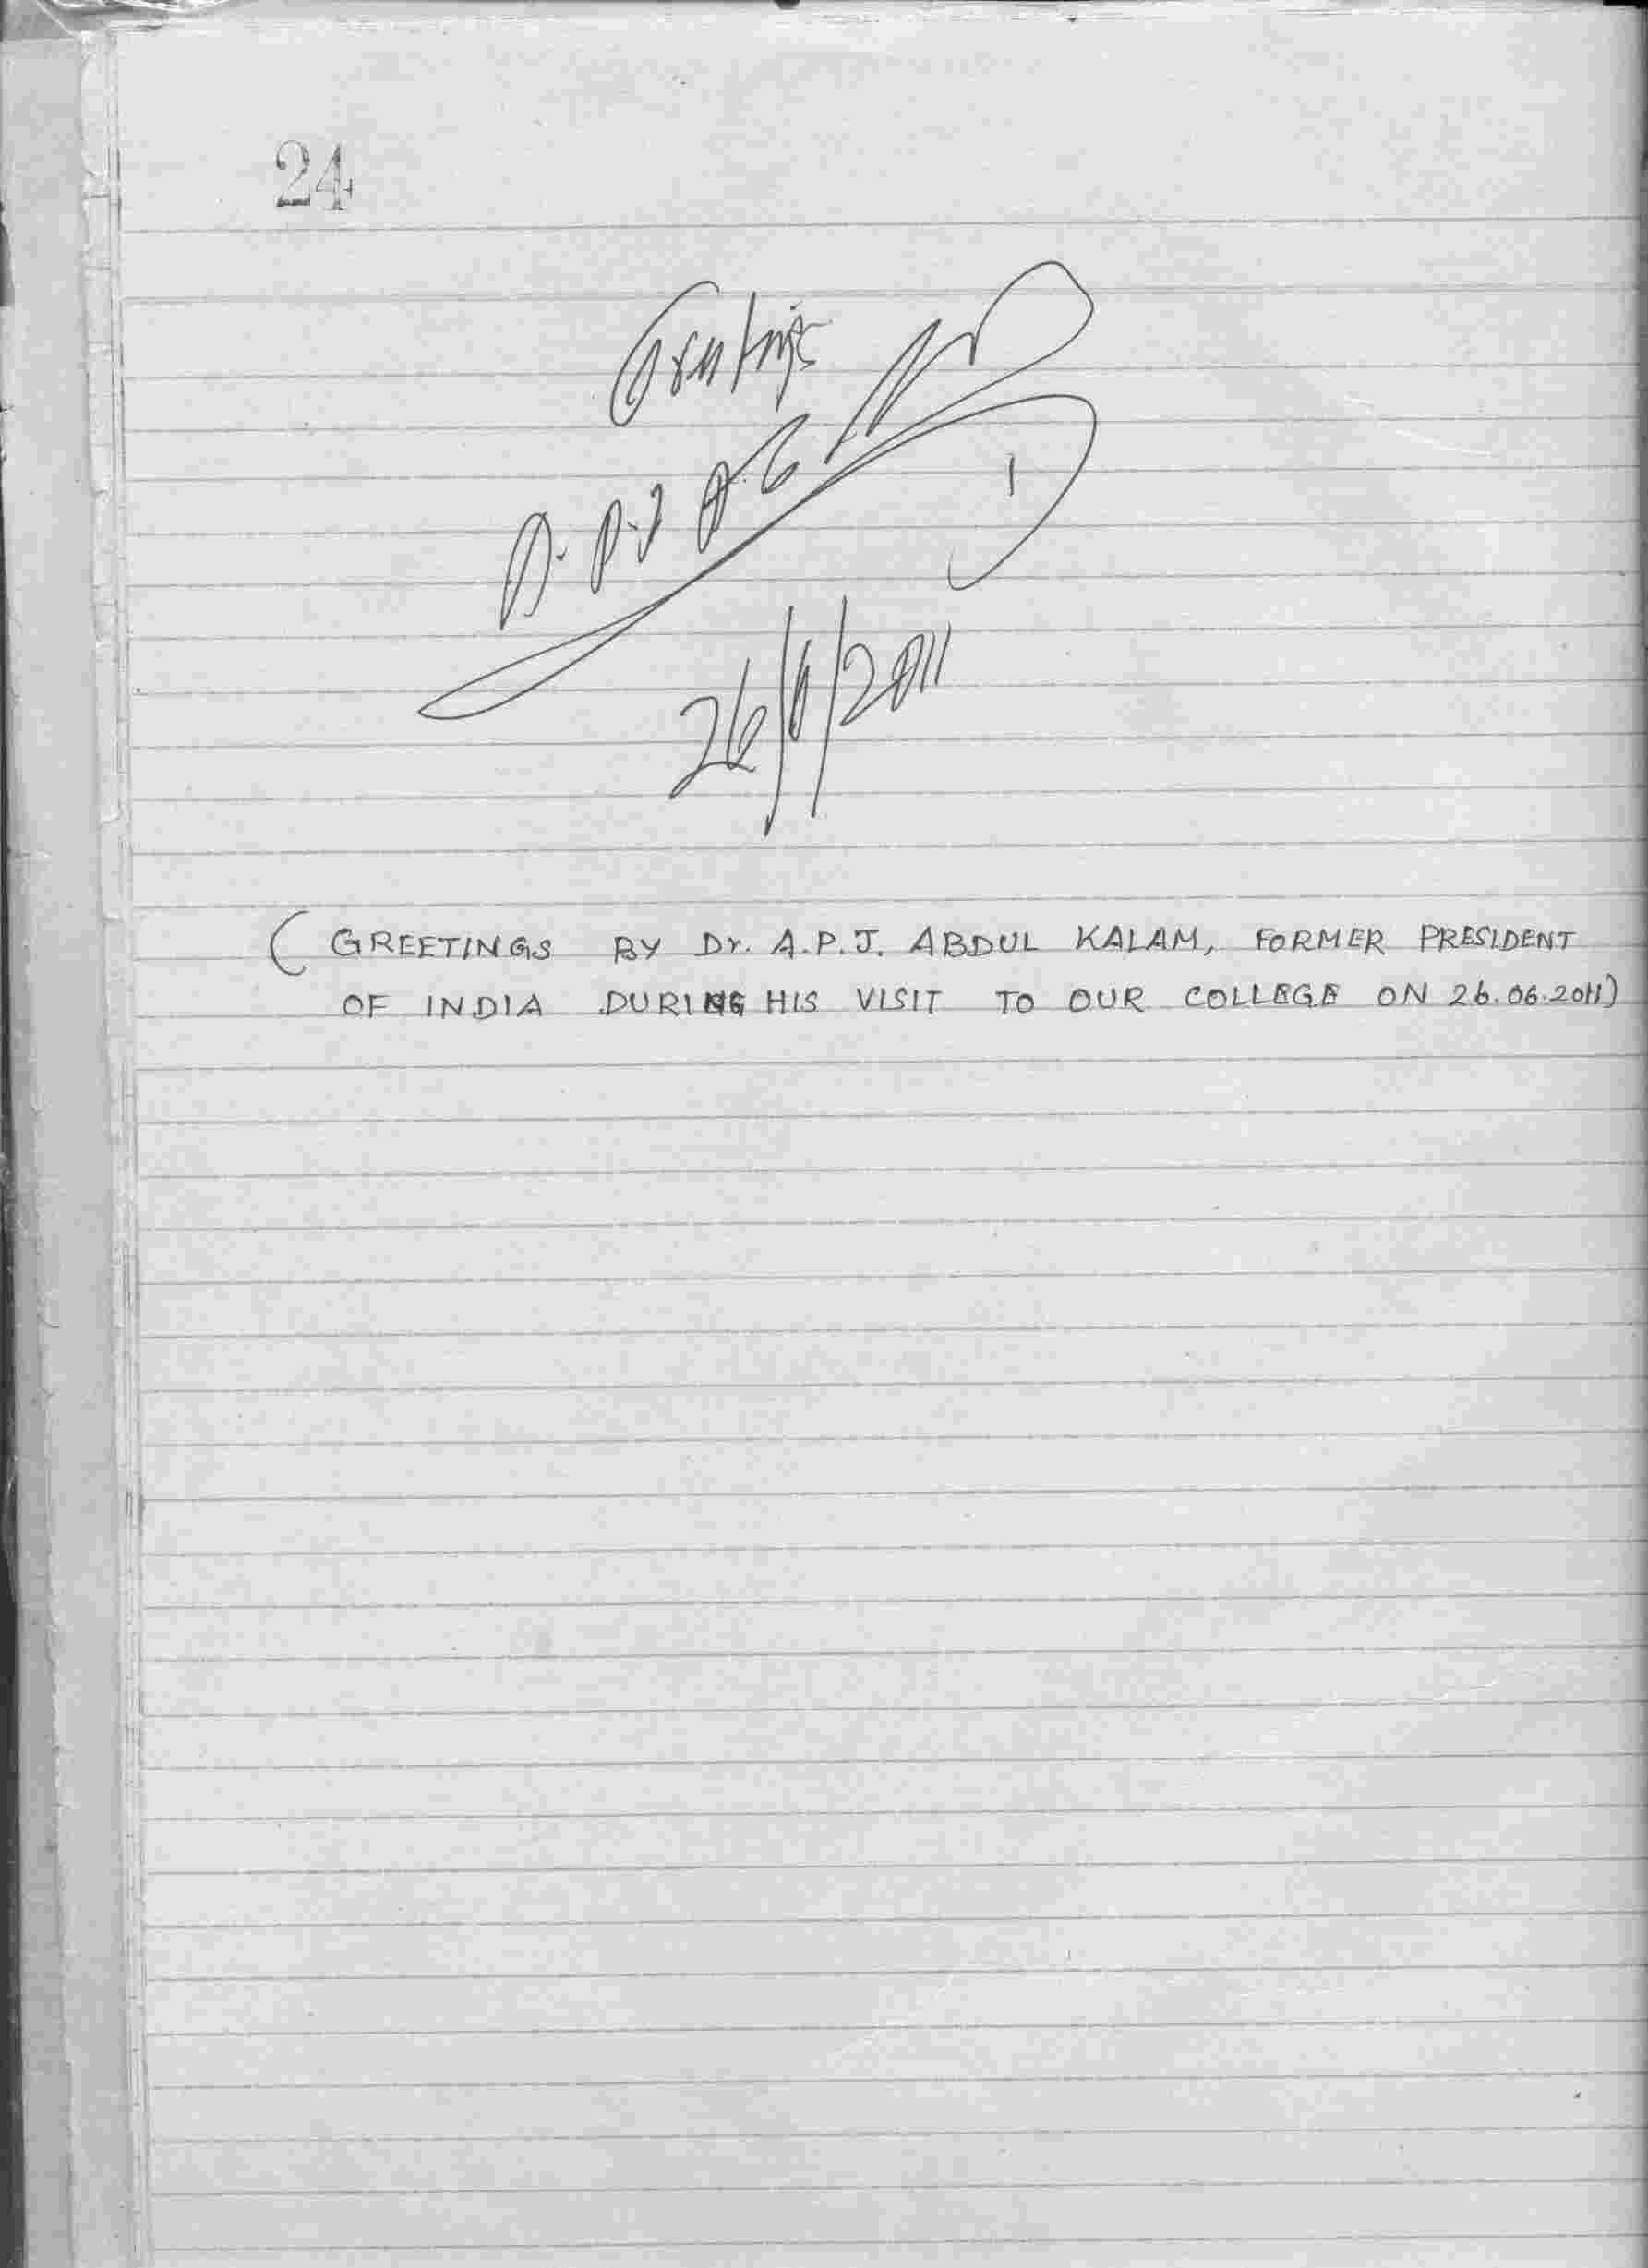 24
Greetings
A.P.J A.
26/6/2011
( GREETINGS BY Dr. A.P.J. ABDUL KALAM, FORMER PRESIDENT
OF INDIA DURING HIS VISIT TO OUR COLLEGE ON 26.06.2011)